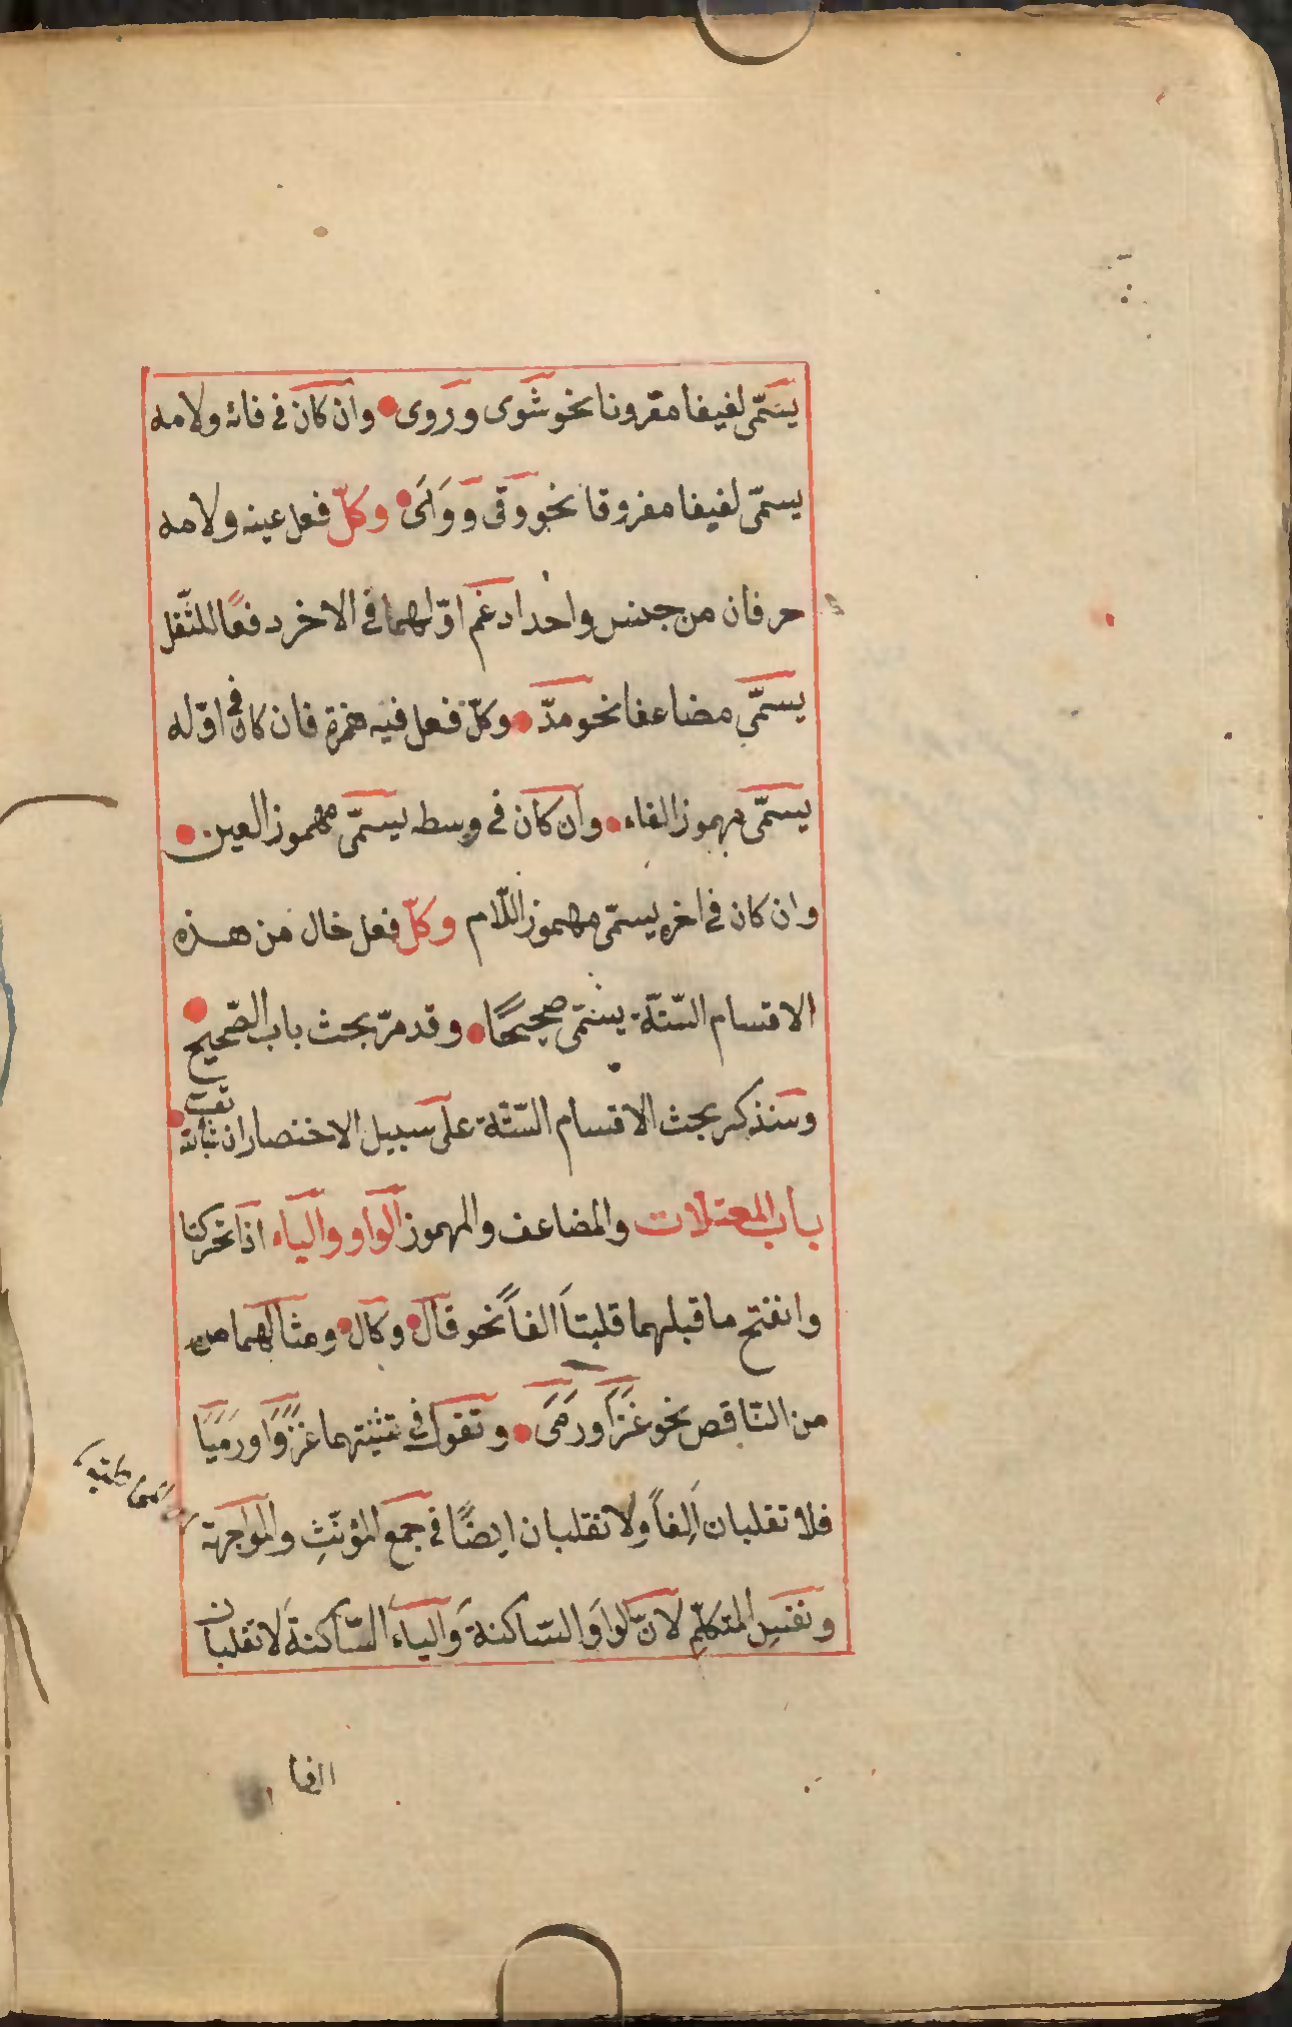 يسَمّى لفيفا مقرونا نحو شَوى ورَوى وان كان فى فائه ولامه
يسمّى لفيفا مفروقا نحو وقى وَوَلَى وكلّ فعل عينه ولامه
حرفان من جنس واحد ادغم اوّلهما فى الاخر دفعًا للثّقل
يسمّى مضاعفا نحو مدّ وكلّ فعل فيه همزة فان كان فى اوّله
يسمّى مهموز الفاء وان كان فى وسطه يسمّى مهموز العين
وان كان فى اخره يسمّى مهموز اللّام وكلّ فعل خال من هذه
الاقسام السّتّة يسمّى صحيحًا وقد مرّ بحث باب الصّحيح
وسنذكر بحث الاقسام السّتّة على سبيل الاختصار ان
باب المعتلات والمضاعف والمهموز الواو والياء اذا تحركتا
وانفتح ما قبلهما قلبتا الفاً نحو قال وكال ومثالهما من
من النّاقص نحو غَزَا ورَمَى وتقول فى تثنيتهما غزَوَا ورَمَيَا
فلا تقلبان اَلِفاً ولا تقلبان ايضًا فى جمع المؤنّثِ والمواجهة
ونفسِ المتكلّمِ لانّ الواوَ السّاكنة وَالياءَ السّاكنةَ لا تقلبان
الفا